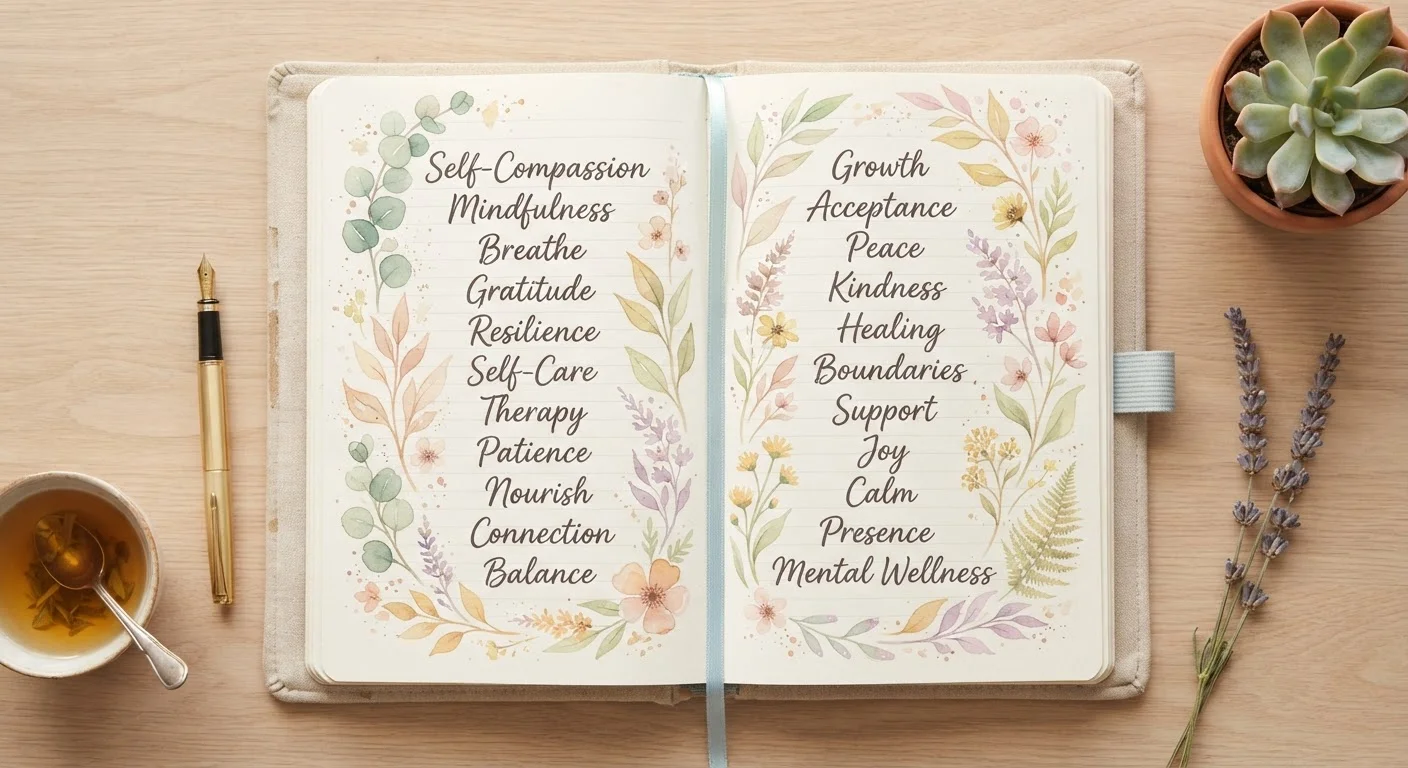 Self-Compassion
Mindfulness
Breathe
Gratitude
Resilience
Self-Care
Therapy
Patience
Nourish
Connection
Balance
Growth
Acceptance
Peace
Kindness
Healing
Boundaries
Support
Joy
Calm
Presence
Mental Wellness